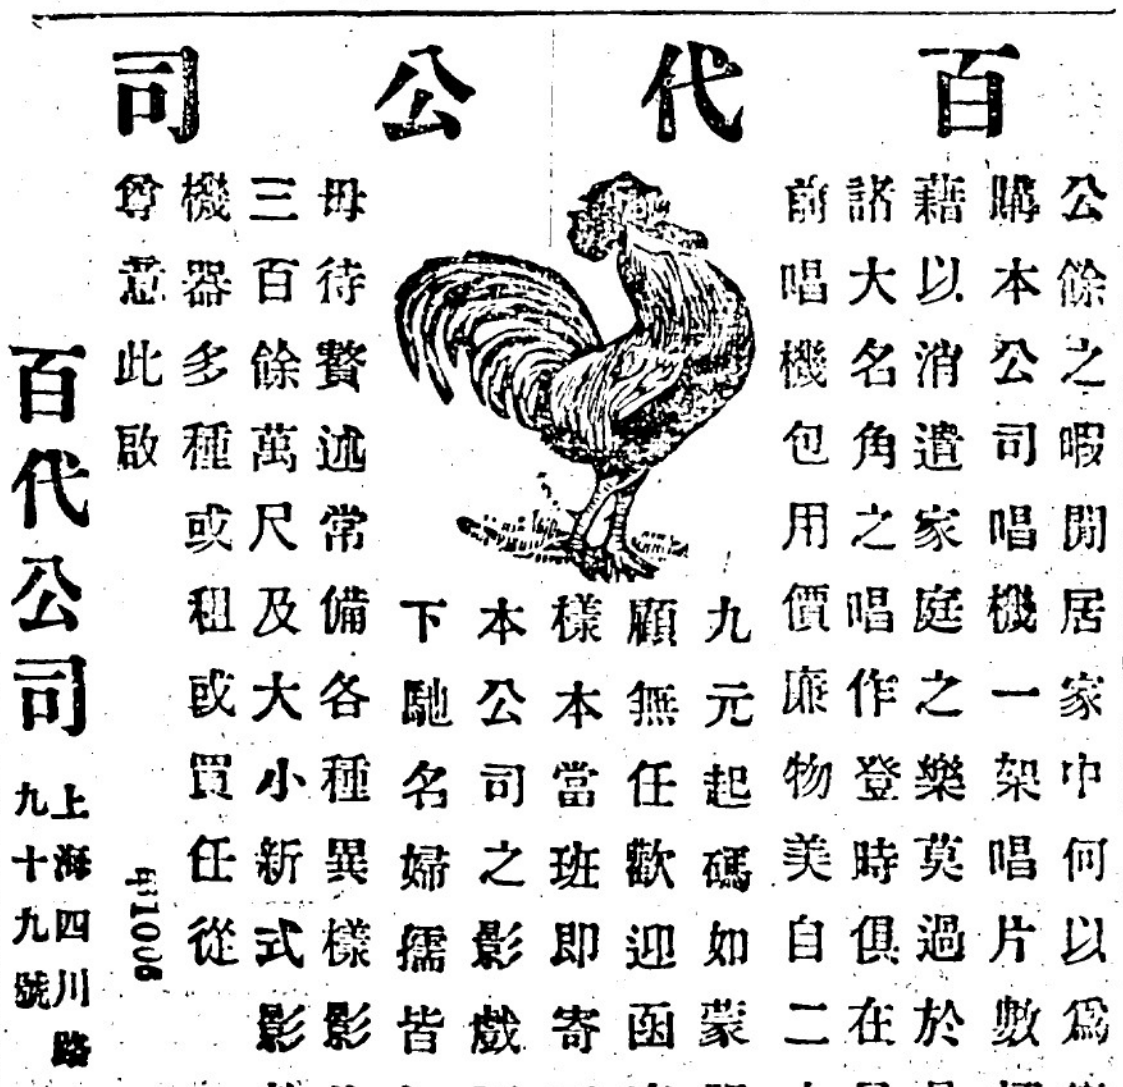 百代公司
公餘之暇閒居家中何以爲
購本公司唱機一架唱片數
藉以消遣家庭之樂莫過於
諸大名角之唱作登時俱在
前唱機包用價廉物美自二
九元起碼如蒙
顧無任歡迎函
樣本當班即寄
本公司之影戲
下馳名婦孺皆
毋待贅述常備各種異樣影
三百餘萬尺及大小新式影
機器多種或租或買任從
尊意此啟
中1006
百代公司
上海四川路
九十九號